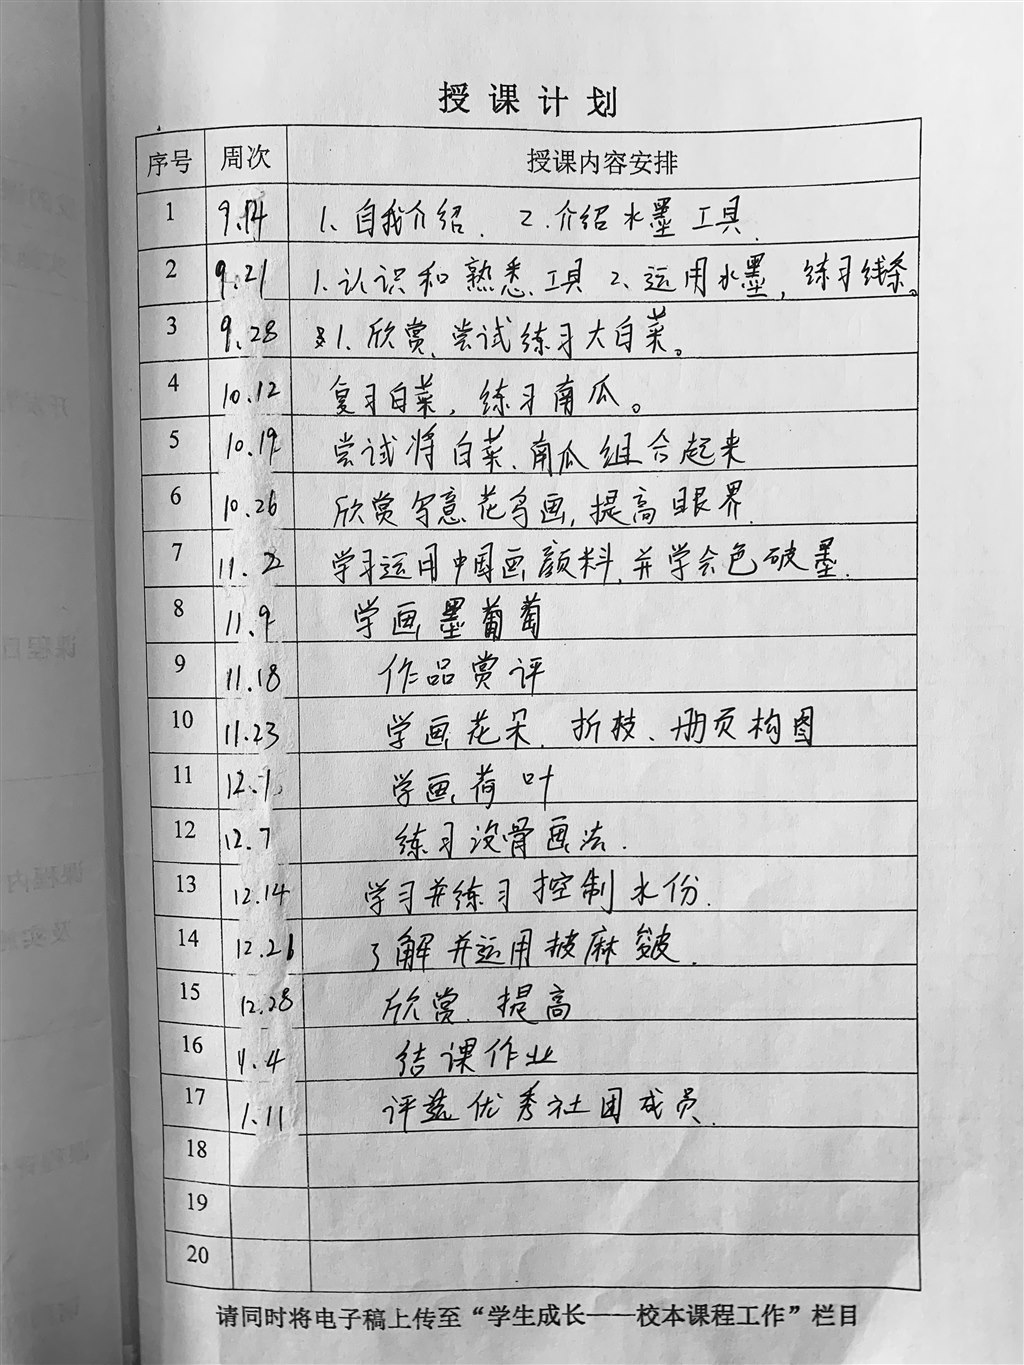 授课计划
序号 周次 授课内容安排
1 9.14 1、自我介绍、 2、介绍水墨工具.
2 9.21 1、认识和熟悉工具 2、运用水墨，练习线条。
3 9.28 1、欣赏、尝试练习大白菜。
4 10.12 复习白菜，练习南瓜。
5 10.19 尝试将白菜、南瓜组合起来
6 10.26 欣赏写意花鸟画,提高眼界.
7 11.2 学习运用中国画颜料,并学会色破墨.
8 11.9 学画墨葡萄
9 11.18 作品赏评
10 11.23 学画花朵、折枝、册页构图
11 12.1 学画荷叶
12 12.7 练习没骨画法.
13 12.14 学习并练习控制水份.
14 12.21 了解并运用披麻皴.
15 12.28 欣赏、提高
16 1.4 结课作业
17 1.11 评选优秀社团成员.
18
19
20
请同时将电子稿上传至“学生成长——校本课程工作”栏目